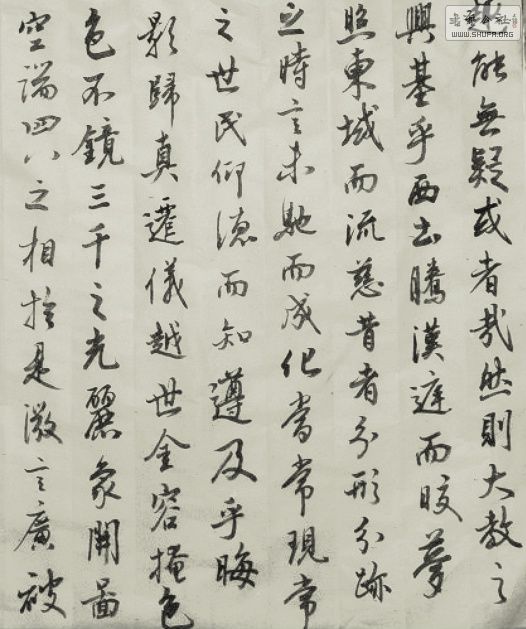 能無疑或者哉然則大教之
興基乎西土騰漢庭而皎夢
照東域而流慈昔者分形分跡
之時言未馳而成化當常現常
之世民仰德而知遵及乎晦
影歸真遷儀越世金容掩色
色不鏡三千之光麗象開圖
空端四八之相於是微言廣被
WWW.SHUFA.ORG